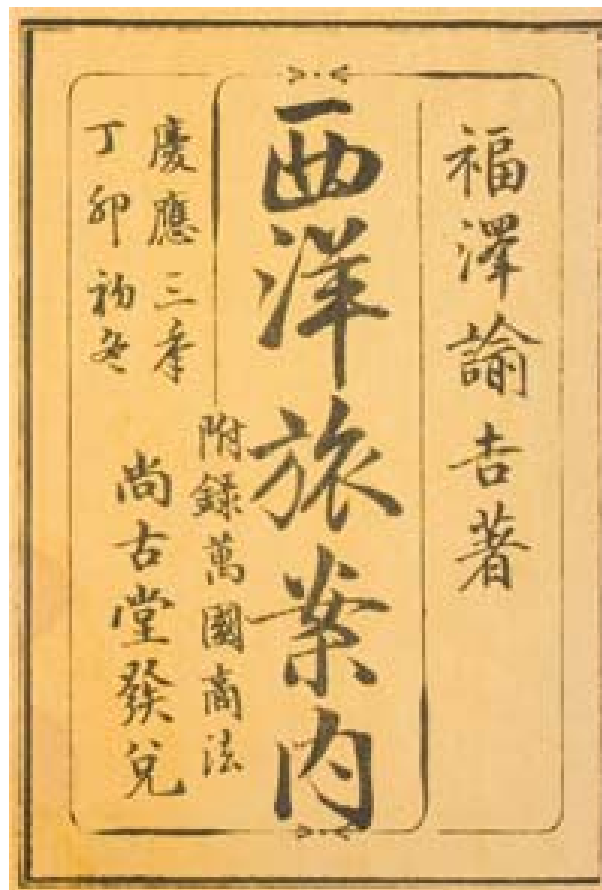 福澤諭吉著
西洋旅案内
附錄萬國商法
慶應三季
丁卯初冬
尚古堂發兌